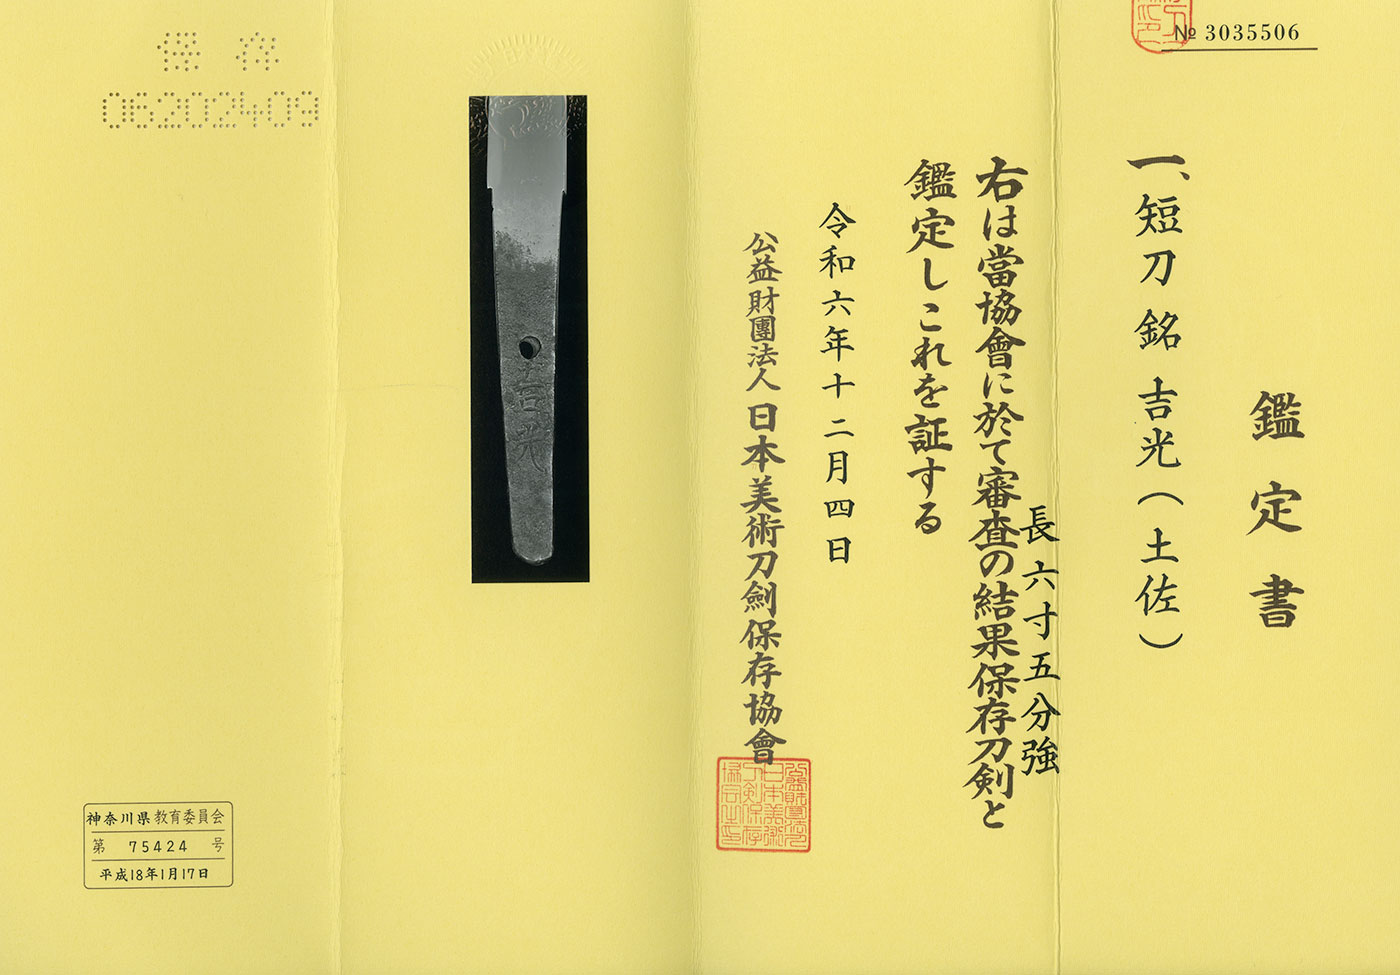 № 3035506
鑑定書
一、短刀 銘 吉光(土佐)
長六寸五分強
右は當協會に於て審査の結果保存刀剣と
鑑定しこれを証する
令和六年十二月四日
公益財團法人 日本美術刀劍保存協會
保存
06202409
吉光
神奈川県教育委員会
第 75424 号
平成18年1月17日